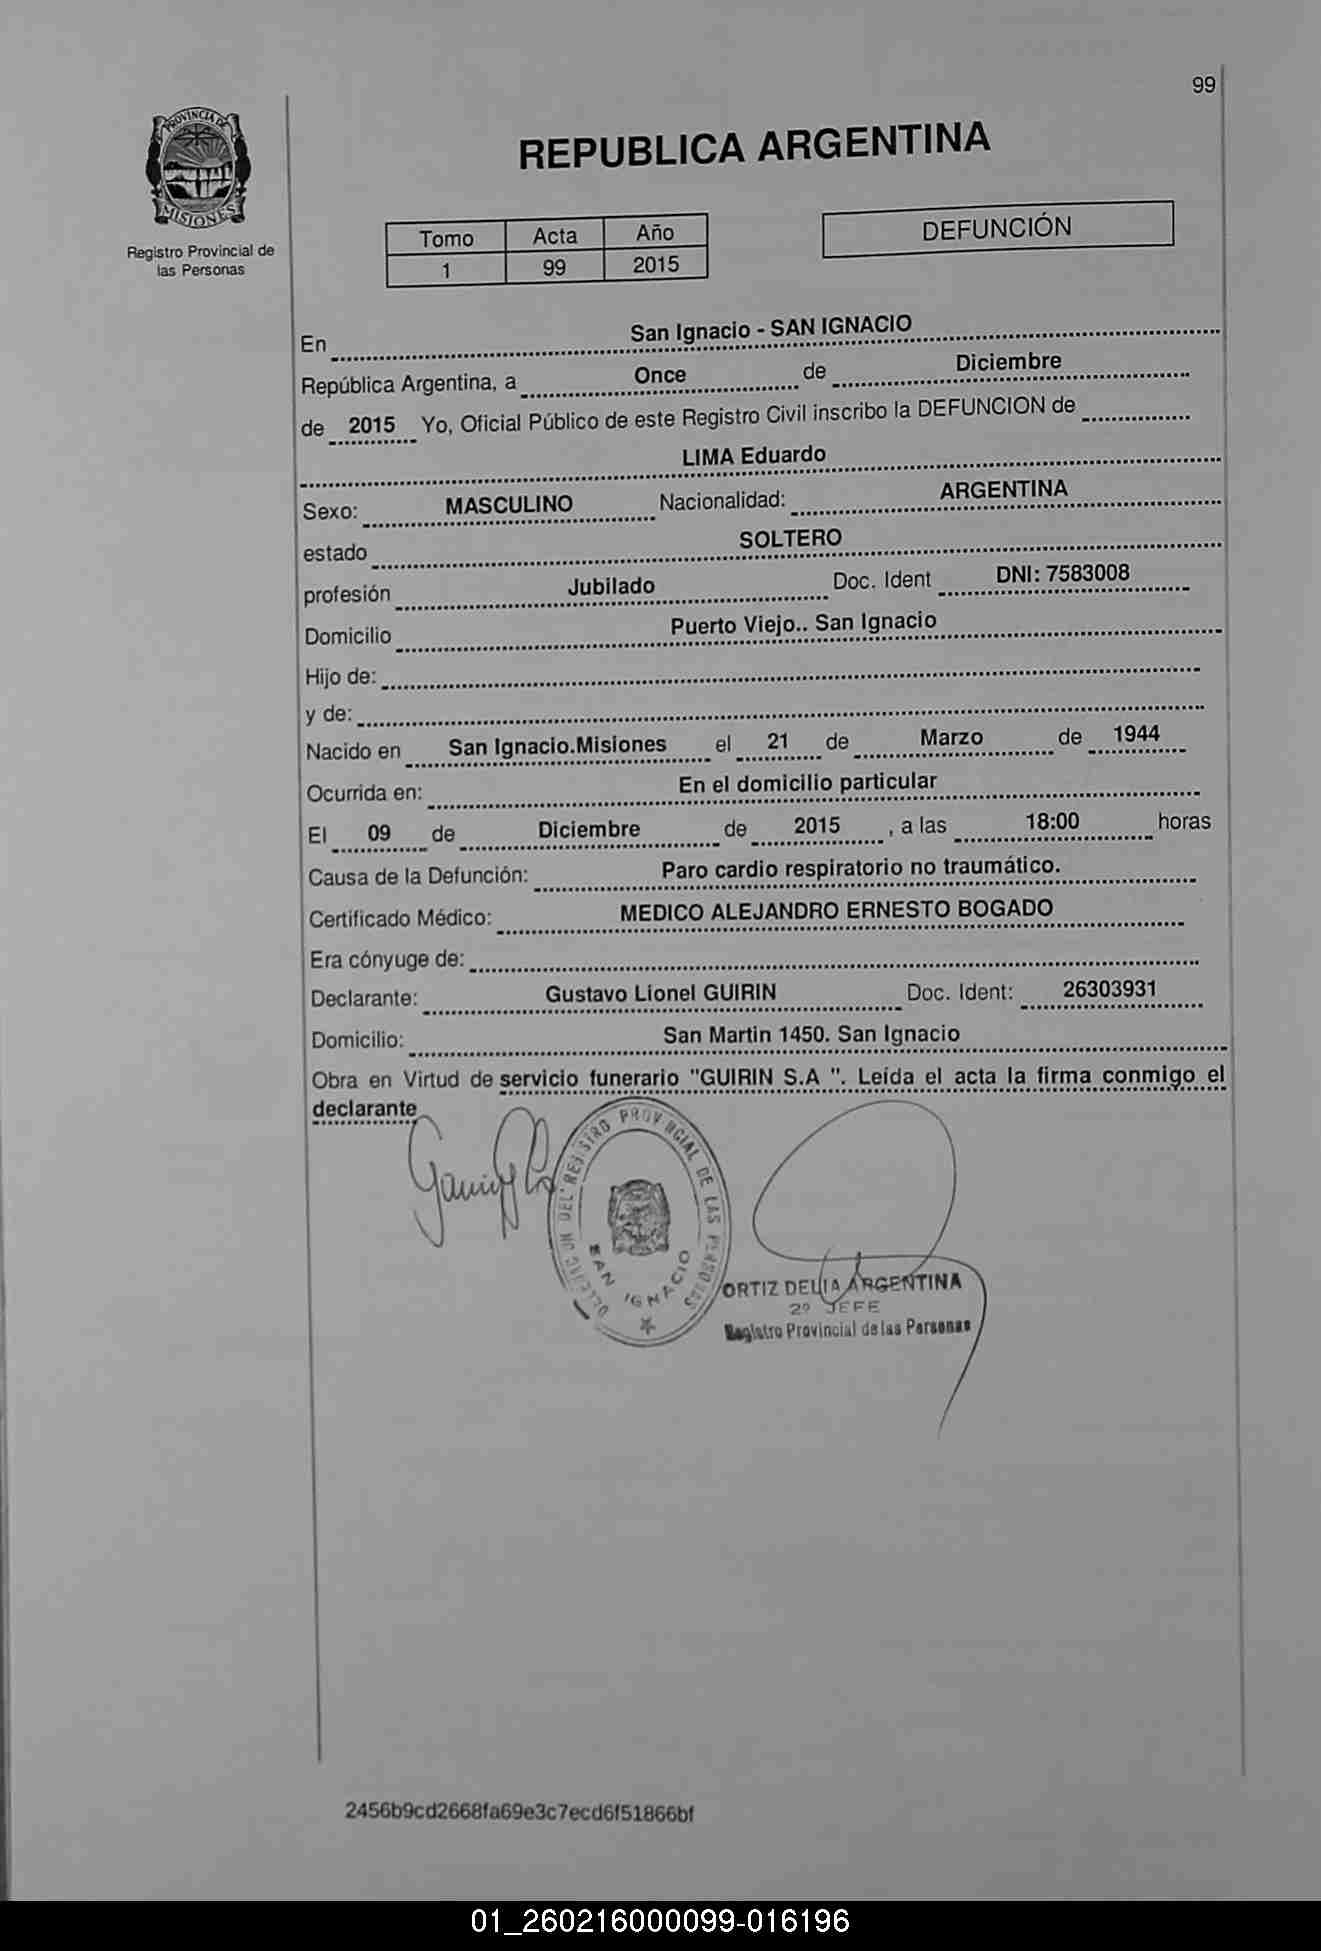 99
PROVINCIA DE
MISIONES
Registro Provincial de
las Personas
REPUBLICA ARGENTINA
Tomo Acta Año
1 99 2015
DEFUNCIÓN
En San Ignacio - SAN IGNACIO
República Argentina, a Once de Diciembre
de 2015 Yo, Oficial Público de este Registro Civil inscribo la DEFUNCION de
LIMA Eduardo
Sexo: MASCULINO Nacionalidad: ARGENTINA
estado SOLTERO
profesión Jubilado Doc. Ident DNI: 7583008
Domicilio Puerto Viejo.. San Ignacio
Hijo de:
y de:
Nacido en San Ignacio.Misiones el 21 de Marzo de 1944
Ocurrida en: En el domicilio particular
El 09 de Diciembre de 2015 , a las 18:00 horas
Causa de la Defunción: Paro cardio respiratorio no traumático.
Certificado Médico: MEDICO ALEJANDRO ERNESTO BOGADO
Era cónyuge de:
Declarante: Gustavo Lionel GUIRIN Doc. Ident: 26303931
Domicilio: San Martin 1450. San Ignacio
Obra en Virtud de servicio funerario "GUIRIN S.A ". Leída el acta la firma conmigo el
declarante
DEL REGISTRO PROVINCIAL DE LAS PERSONAS
SAN IGNACIO
ORTIZ DELIA ARGENTINA
2º JEFE
Registro Provincial de las Personas
2456b9cd2668fa69e3c7ecd6f51866bf
01_260216000099-016196